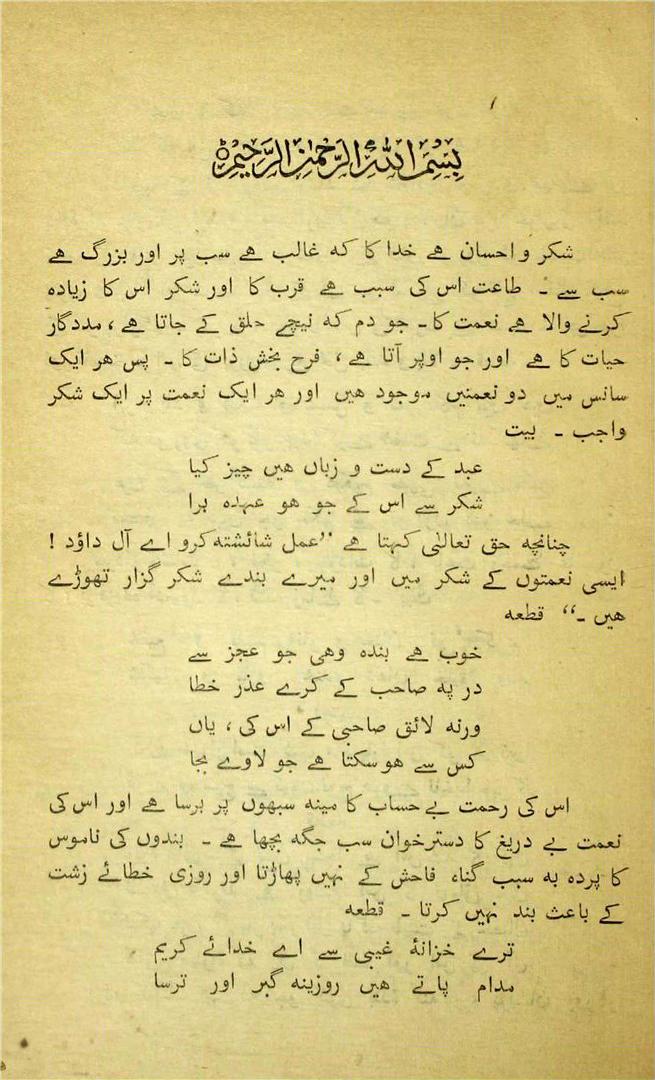 بِسْمِ اللهِ الرَّحْمٰنِ الرَّحِيْمِ ٥
شکر و احسان ہے خدا کا کہ غالب ہے سب پر اور بزرگ ہے
سب سے ۔ طاعت اس کی سبب ہے قرب کا اور شکر اس کا زیادہ
کرنے والا ہے نعمت کا ۔ جو دم کہ نیچے حلق کے جاتا ہے ، مددگار
حیات کا ہے اور جو اوپر آتا ہے ، فرح بخش ذات کا ۔ پس ہر ایک
سانس میں دو نعمتیں موجود ہیں اور ہر ایک نعمت پر ایک شکر
واجب ۔ بیت
عبد کے دست و زباں ہیں چیز کیا
شکر سے اس کے جو ہو عہدہ برا
چنانچہ حق تعالیٰ کہتا ہے ”عمل شائستہ کرو اے آل داؤد !
ایسی نعمتوں کے شکر میں اور میرے بندے شکر گزار تھوڑے
ہیں ۔“ قطعہ
خوب ہے بندہ وہی جو عجز سے
در پہ صاحب کے کرے عذر خطا
ورنہ لائق صاحبی کے اس کی ، یاں
کس سے ہو سکتا ہے جو لاوے بجا
اس کی رحمت بے حساب کا مینہ سبھوں پر برسا ہے اور اس کی
نعمت بے دریغ کا دسترخوان سب جگہ بچھا ہے ۔ بندوں کی ناموس
کا پردہ بہ سبب گناہ فاحش کے نہیں پھاڑتا اور روزی خطائے زشت
کے باعث بند نہیں کرتا ۔ قطعہ
ترے خزانۂ غیبی سے اے خدائے کریم
مدام پاتے ہیں روزینہ گبر اور ترسا